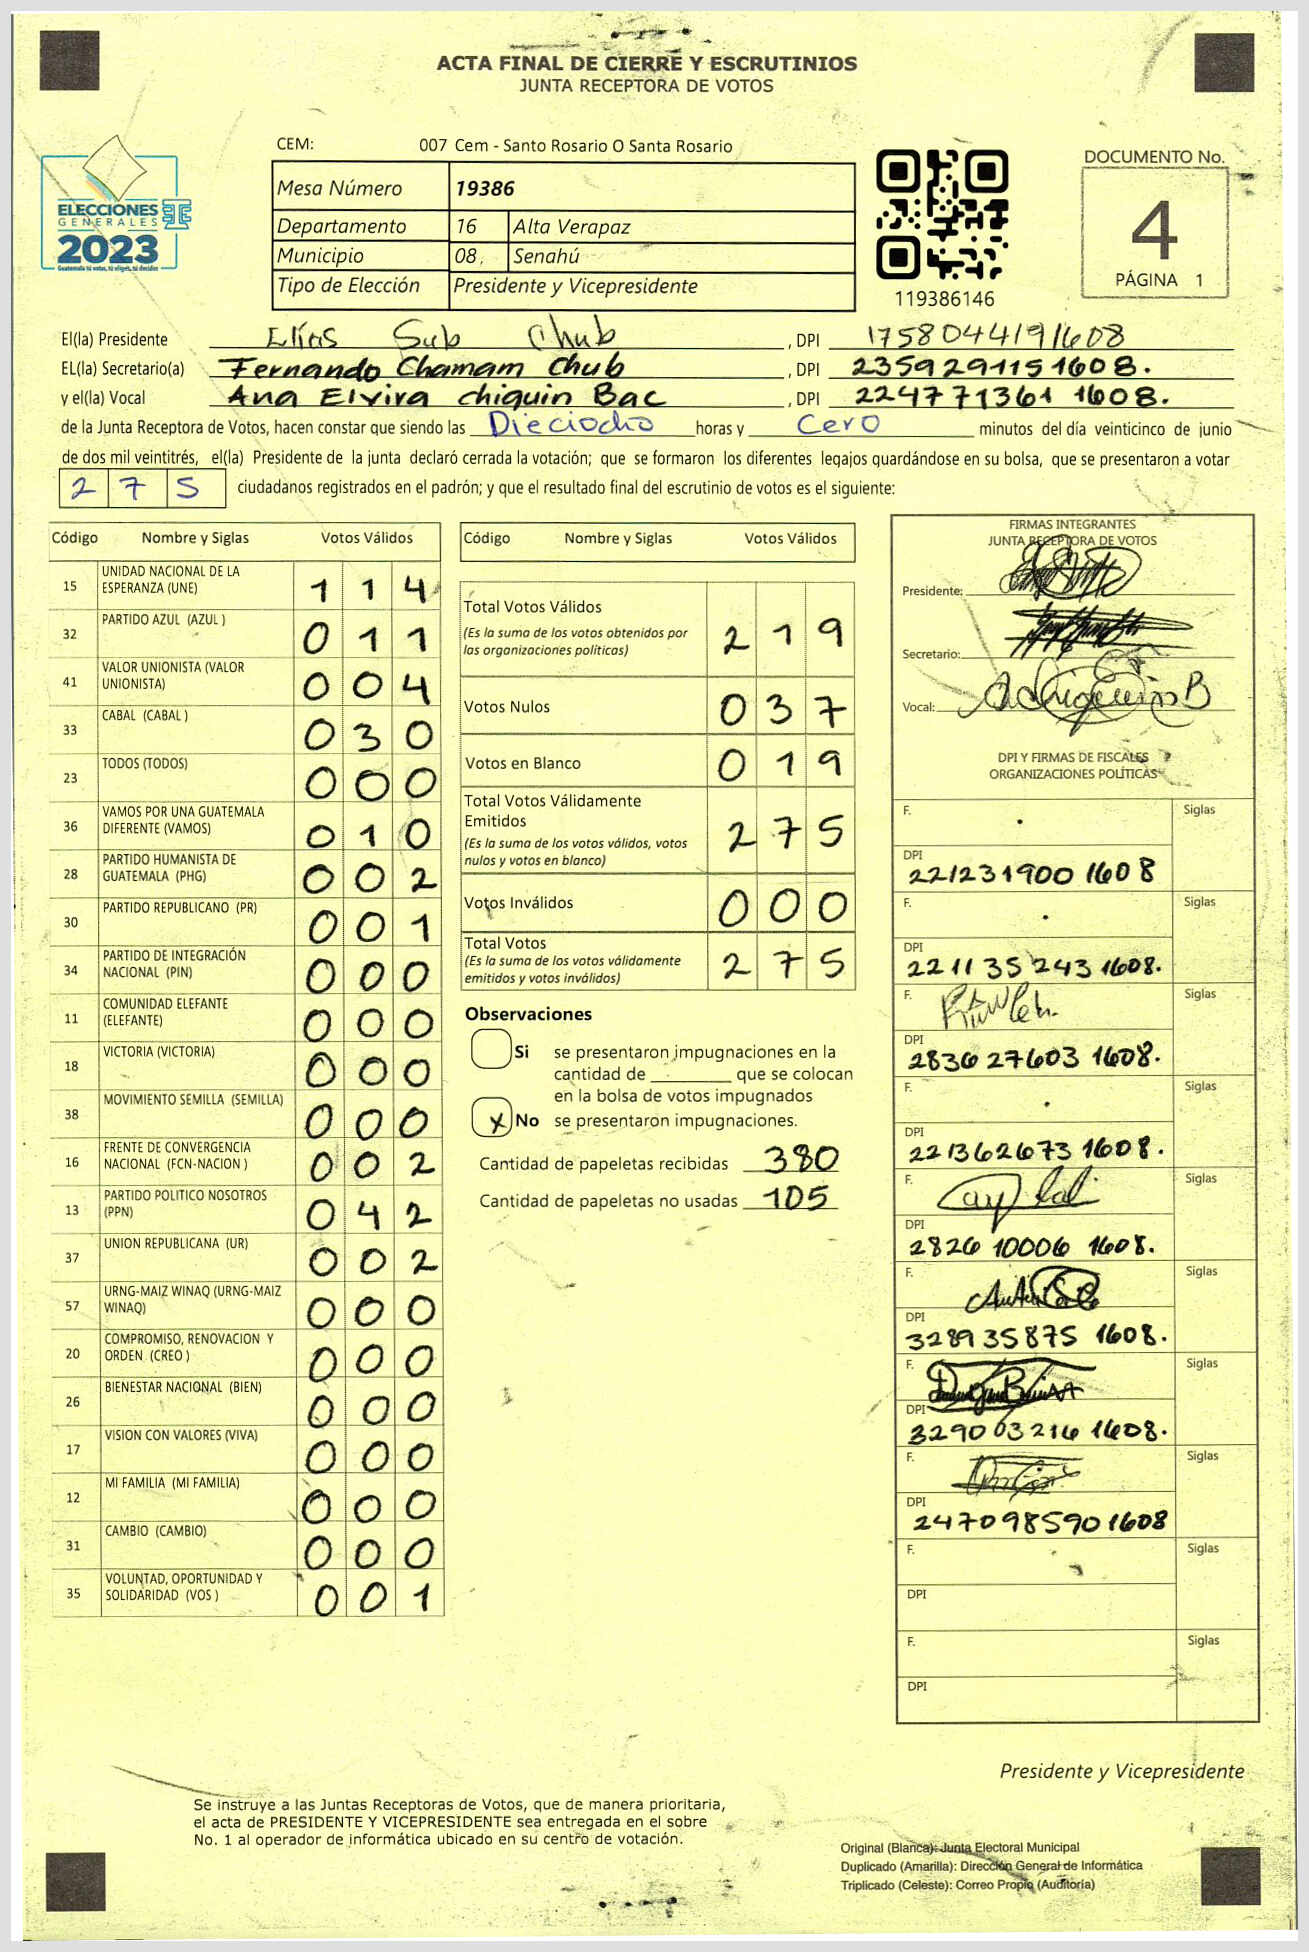 ACTA FINAL DE CIERRE Y ESCRUTINIOS
JUNTA RECEPTORA DE VOTOS
ELECCIONES
GENERALES
2023
Guatemala tú votas, tú eliges, tú decides
CEM: 007 Cem - Santo Rosario O Santa Rosario
Mesa Número 19386
Departamento 16 Alta Verapaz
Municipio 08, Senahú
Tipo de Elección Presidente y Vicepresidente
119386146
DOCUMENTO No.
4
PÁGINA 1
El(la) Presidente Elías Sub Chub , DPI 1758044191608
EL(la) Secretario(a) Fernando Chamam Chub , DPI 2359291151608.
y el(la) Vocal Ana Elvira chiquin Bac , DPI 224771361 1608.
de la Junta Receptora de Votos, hacen constar que siendo las Dieciocho horas y Cero minutos del día veinticinco de junio
de dos mil veintitrés, el(la) Presidente de la junta declaró cerrada la votación; que se formaron los diferentes legajos guardándose en su bolsa, que se presentaron a votar
2 7 5 ciudadanos registrados en el padrón; y que el resultado final del escrutinio de votos es el siguiente:
Código Nombre y Siglas Votos Válidos
15 UNIDAD NACIONAL DE LA ESPERANZA (UNE) 1 1 4
32 PARTIDO AZUL (AZUL ) 0 1 1
41 VALOR UNIONISTA (VALOR UNIONISTA) 0 0 4
33 CABAL (CABAL ) 0 3 0
23 TODOS (TODOS) 0 0 0
36 VAMOS POR UNA GUATEMALA DIFERENTE (VAMOS) 0 1 0
28 PARTIDO HUMANISTA DE GUATEMALA (PHG) 0 0 2
30 PARTIDO REPUBLICANO (PR) 0 0 1
34 PARTIDO DE INTEGRACIÓN NACIONAL (PIN) 0 0 0
11 COMUNIDAD ELEFANTE (ELEFANTE) 0 0 0
18 VICTORIA (VICTORIA) 0 0 0
38 MOVIMIENTO SEMILLA (SEMILLA) 0 0 0
16 FRENTE DE CONVERGENCIA NACIONAL (FCN-NACION ) 0 0 2
13 PARTIDO POLITICO NOSOTROS (PPN) 0 4 2
37 UNION REPUBLICANA (UR) 0 0 2
57 URNG-MAIZ WINAQ (URNG-MAIZ WINAQ) 0 0 0
20 COMPROMISO, RENOVACION Y ORDEN (CREO ) 0 0 0
26 BIENESTAR NACIONAL (BIEN) 0 0 0
17 VISION CON VALORES (VIVA) 0 0 0
12 MI FAMILIA (MI FAMILIA) 0 0 0
31 CAMBIO (CAMBIO) 0 0 0
35 VOLUNTAD, OPORTUNIDAD Y SOLIDARIDAD (VOS ) 0 0 1
Código Nombre y Siglas Votos Válidos
Total Votos Válidos 2 1 9
(Es la suma de los votos obtenidos por
las organizaciones políticas)
Votos Nulos 0 3 7
Votos en Blanco 0 1 9
Total Votos Válidamente
Emitidos 2 7 5
(Es la suma de los votos válidos, votos
nulos y votos en blanco)
Votos Inválidos 0 0 0
Total Votos 2 7 5
(Es la suma de los votos válidamente
emitidos y votos inválidos)
Observaciones
Si se presentaron impugnaciones en la
cantidad de ________ que se colocan
en la bolsa de votos impugnados
x No se presentaron impugnaciones.
Cantidad de papeletas recibidas 380
Cantidad de papeletas no usadas 105
FIRMAS INTEGRANTES
JUNTA RECEPTORA DE VOTOS
Presidente:
Secretario:
Vocal:
DPI Y FIRMAS DE FISCALES
ORGANIZACIONES POLÍTICAS
F. Siglas
DPI
221231900 1608
F. Siglas
DPI
221135243 1608.
F. Siglas
DPI
283627603 1608.
F. Siglas
DPI
221362673 1608.
F. Siglas
DPI
282610006 1608.
F. Siglas
DPI
328935875 1608.
F. Siglas
DPI
329003216 1608.
F. Siglas
DPI
2470985901608
F. Siglas
DPI
F. Siglas
DPI
Presidente y Vicepresidente
Se instruye a las Juntas Receptoras de Votos, que de manera prioritaria,
el acta de PRESIDENTE Y VICEPRESIDENTE sea entregada en el sobre
No. 1 al operador de informática ubicado en su centro de votación.
Original (Blanca): Junta Electoral Municipal
Duplicado (Amarilla): Dirección General de Informática
Triplicado (Celeste): Correo Propio (Auditoría)